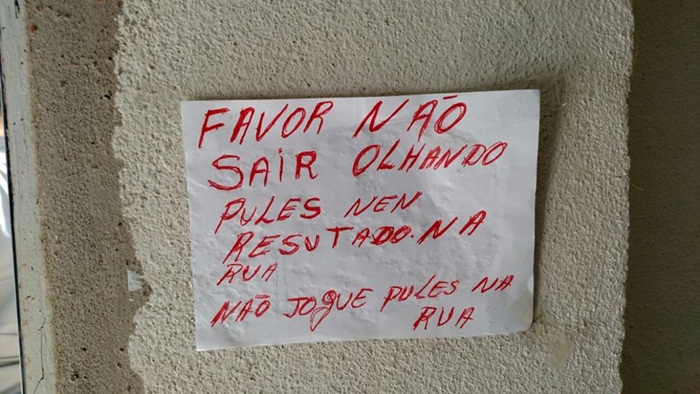 FAVOR NÃO
SAIR OLHANDO
PULES NEN
RESUTADO. NA
RUA
NÃO JOGUE PULES NA
RUA